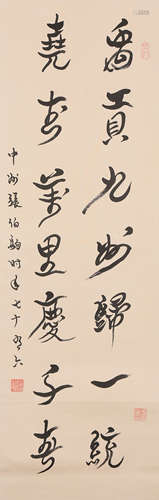 禹貢九州歸一統
堯封萬里慶千春
中州張伯駒時年七十有六